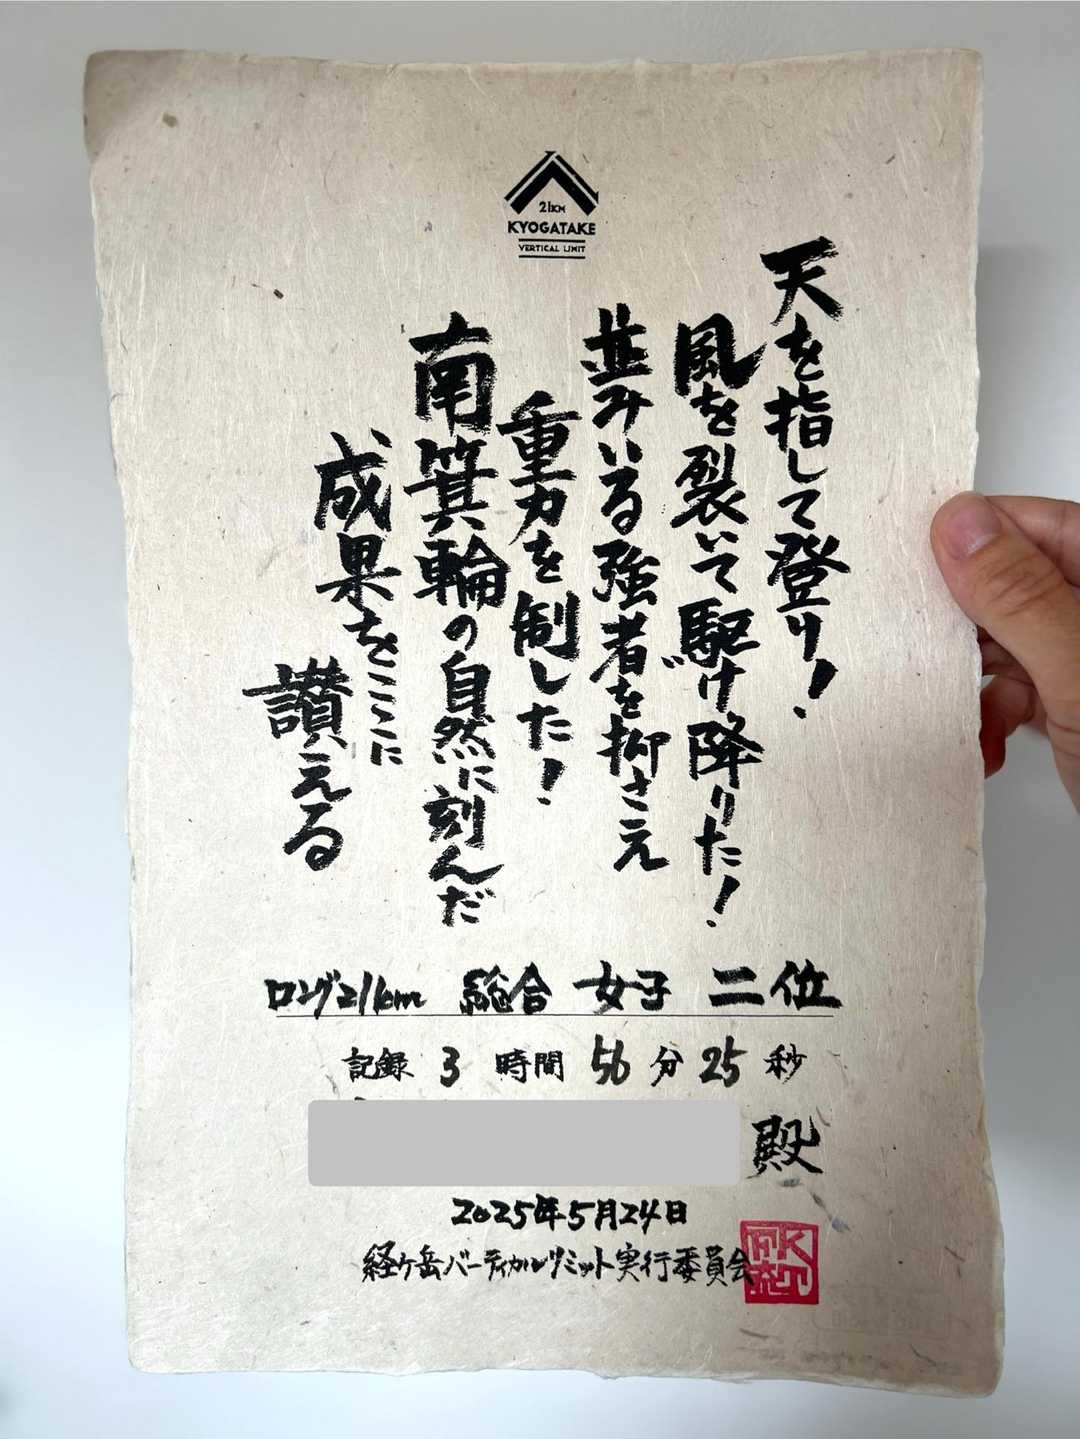 21KM
KYOGATAKE
VERTICAL LIMIT
天を指して登り！
風を裂いて駆け降りた！
並みいる強者を抑さえ
重力を制した！
南箕輪の自然に刻んだ
成果をここに
讃える
ロング21km 総合 女子 二位
記録 3 時間 56 分 25 秒
殿
2025年5月24日
経ヶ岳バーティカルリミット実行委員会